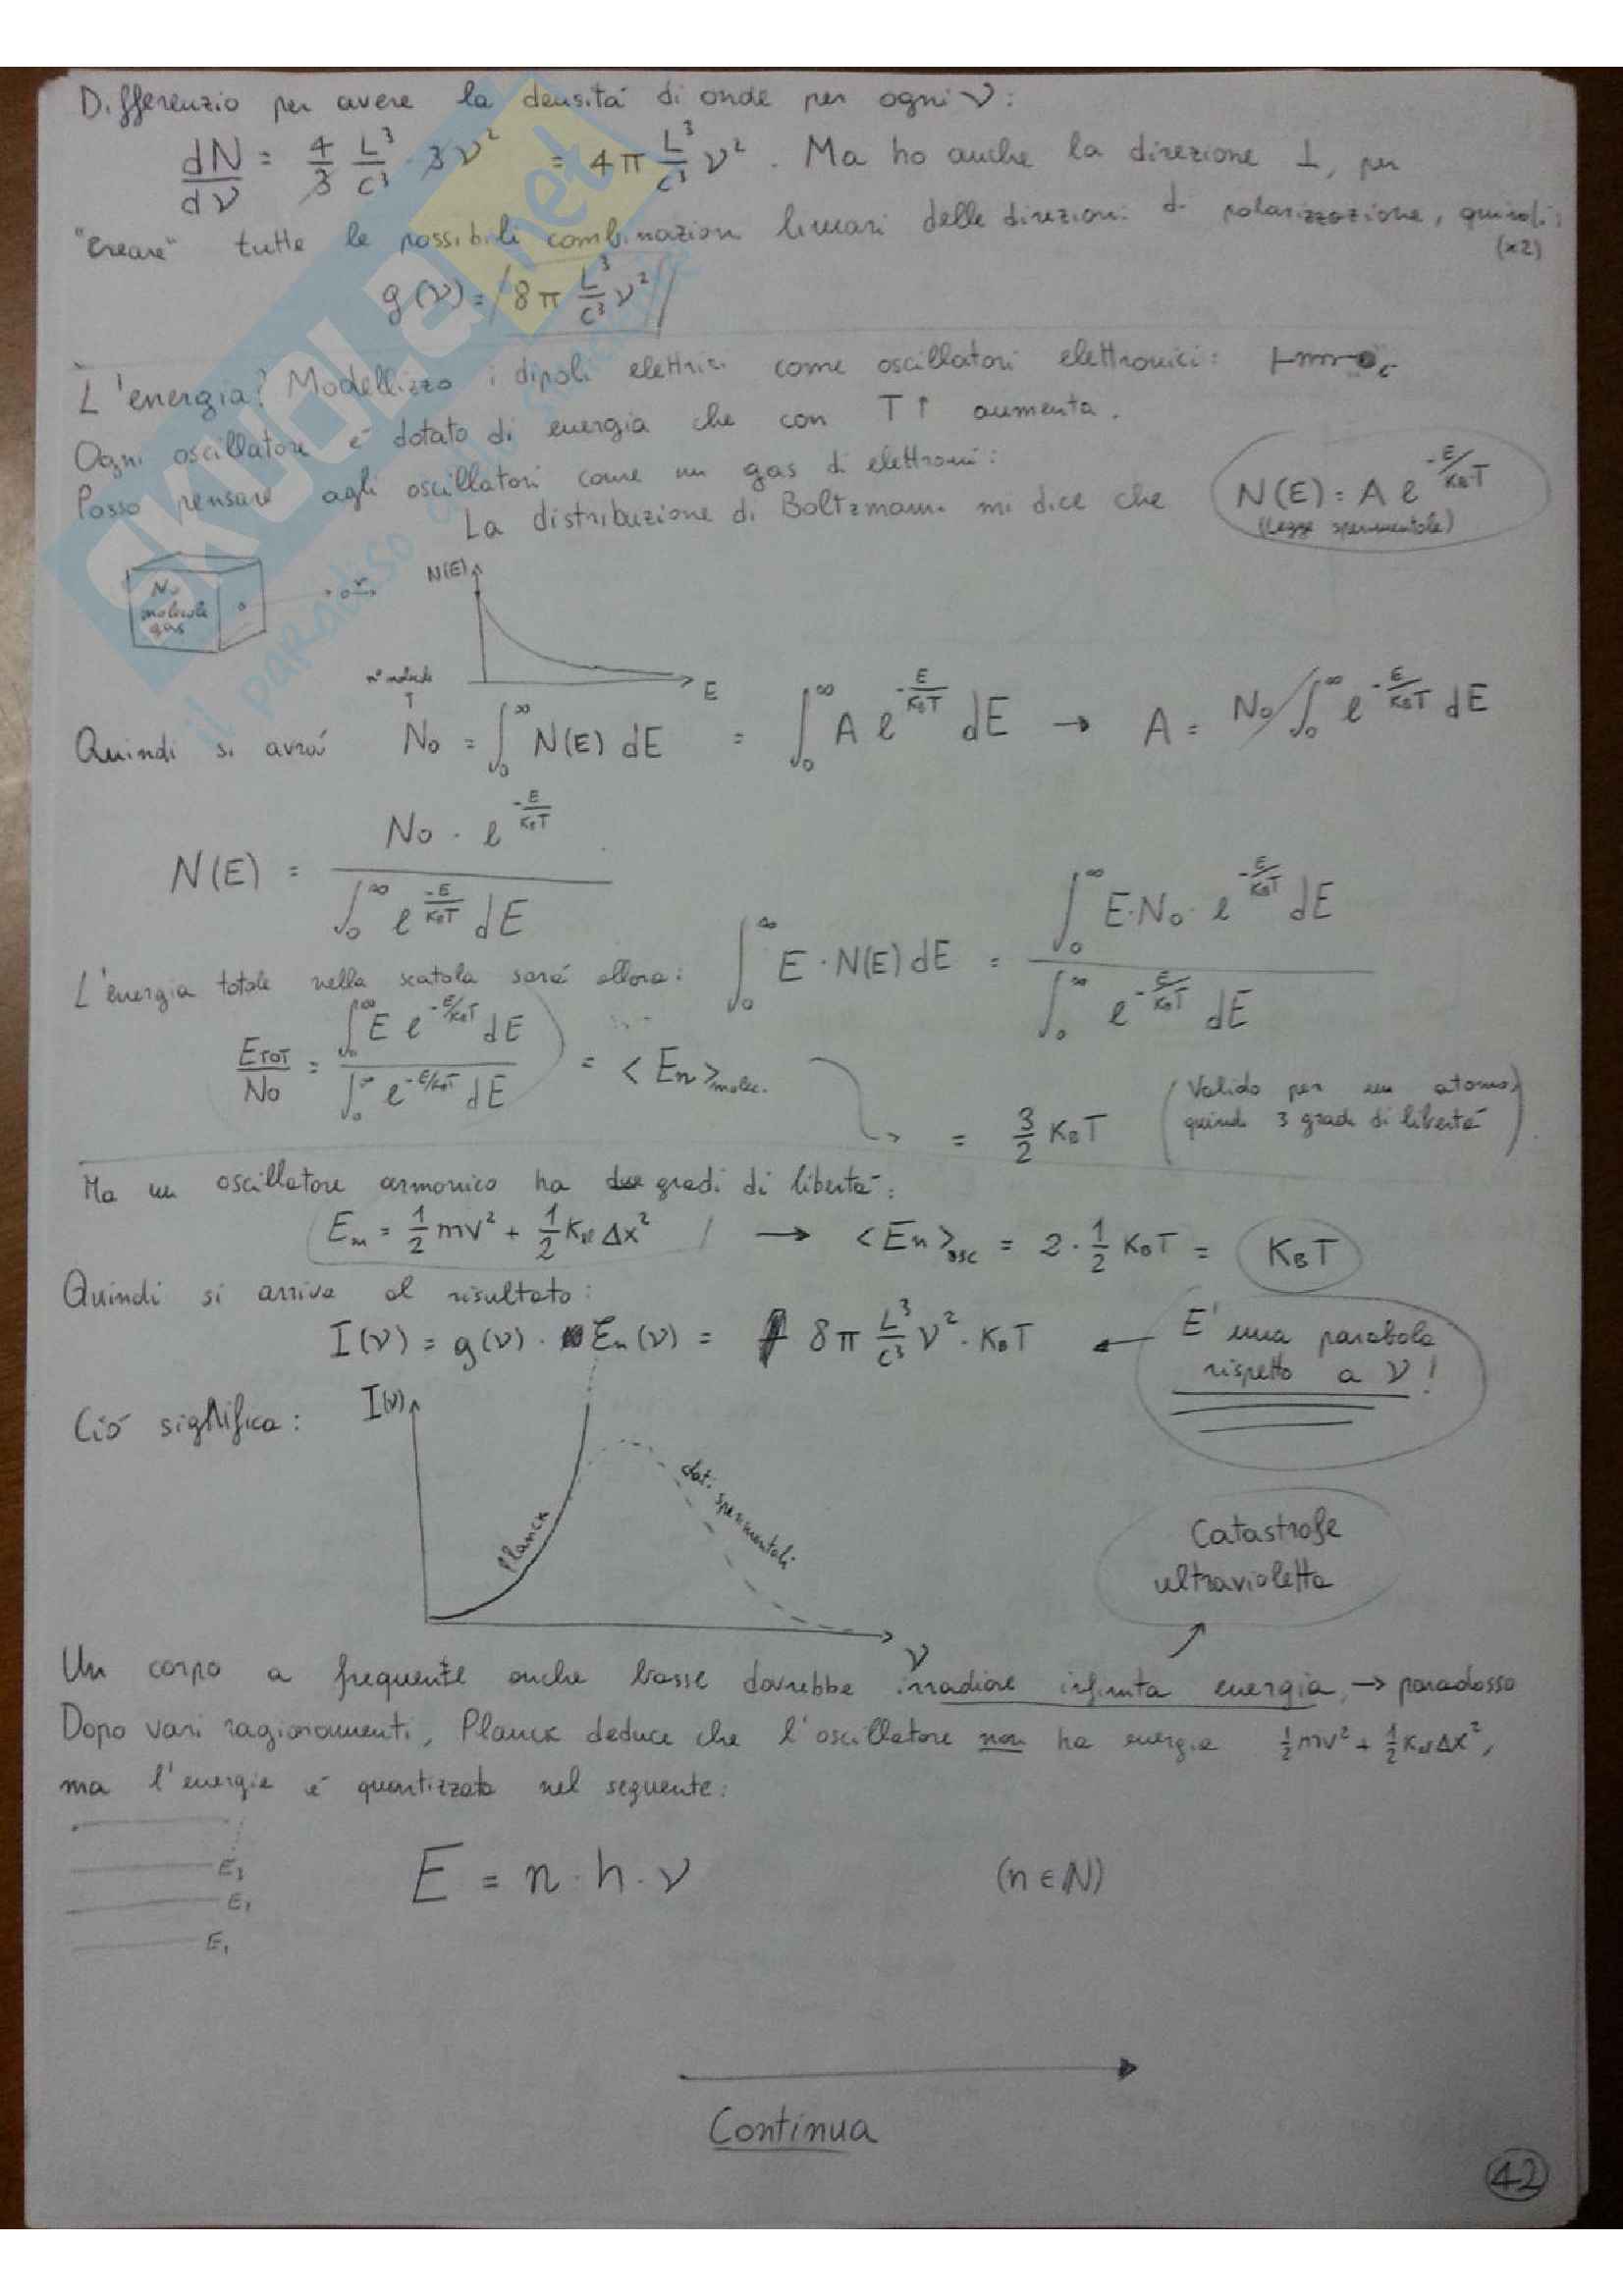 Differenzio per avere la densitá di onde per ogni ν:
dN/dν = 4/3 L³/c³ · 3ν² = 4π L³/c³ ν² . Ma ho anche la direzione ⊥, per
"creare" tutte le possibili combinazioni lineari delle direzioni di polarizzazione, quindi:
(x2)
g(ν) = 8π L³/c³ ν²
L'energia? Modellizzo i dipoli elettrici come oscillatori elettronici:
Ogni oscillatore é dotato di energia che con T↑ aumenta.
Posso pensare agli oscillatori come un gas di elettroni:
La distribuzione di Boltzmann mi dice che N(E) = A e^(-E/KBT)
(legge sperimentale)
No molecole gas
v
N(E)
E
n° molecole
↑
Quindi si avrá No = ∫₀^∞ N(E) dE = ∫₀^∞ A e^(-E/KBT) dE → A = No/∫₀^∞ e^(-E/KBT) dE
N(E) = No · e^(-E/KBT) / ∫₀^∞ e^(-E/KBT) dE
L'energia totale nella scatola sará allora: ∫₀^∞ E · N(E) dE = ∫₀^∞ E·No· e^(-E/KBT) dE / ∫₀^∞ e^(-E/KBT) dE
ETOT/No = ∫₀^∞ E e^(-E/KBT) dE / ∫₀^∞ e^(-E/KBT) dE = <En>molec.
= 3/2 KBT (Valido per un atomo, quindi 3 gradi di libertá)
Ma un oscillatore armonico ha due gradi di libertá:
Em = 1/2 mv² + 1/2 Kel Δx² → <En>osc = 2 · 1/2 KBT = KBT
Quindi si arriva al risultato:
I(ν) = g(ν) · En(ν) = 8π L³/c³ ν² · KBT ← E' una parabola rispetto a ν!
Ció significa:
I(ν)
Planck
dati sperimentali
ν
Catastrofe
ultravioletta
Un corpo a frequenze anche basse dovrebbe irradiare infinita energia, → paradosso
Dopo vari ragionamenti, Planck deduce che l'oscillatore non ha energia 1/2 mv² + 1/2 Kel Δx²,
ma l'energia é quantizzata nel seguente:
E₃
E₁
E₁
E = n · h · ν (n ∈ N)
Continua
42
SKUOLA.net
il paradiso dello studente